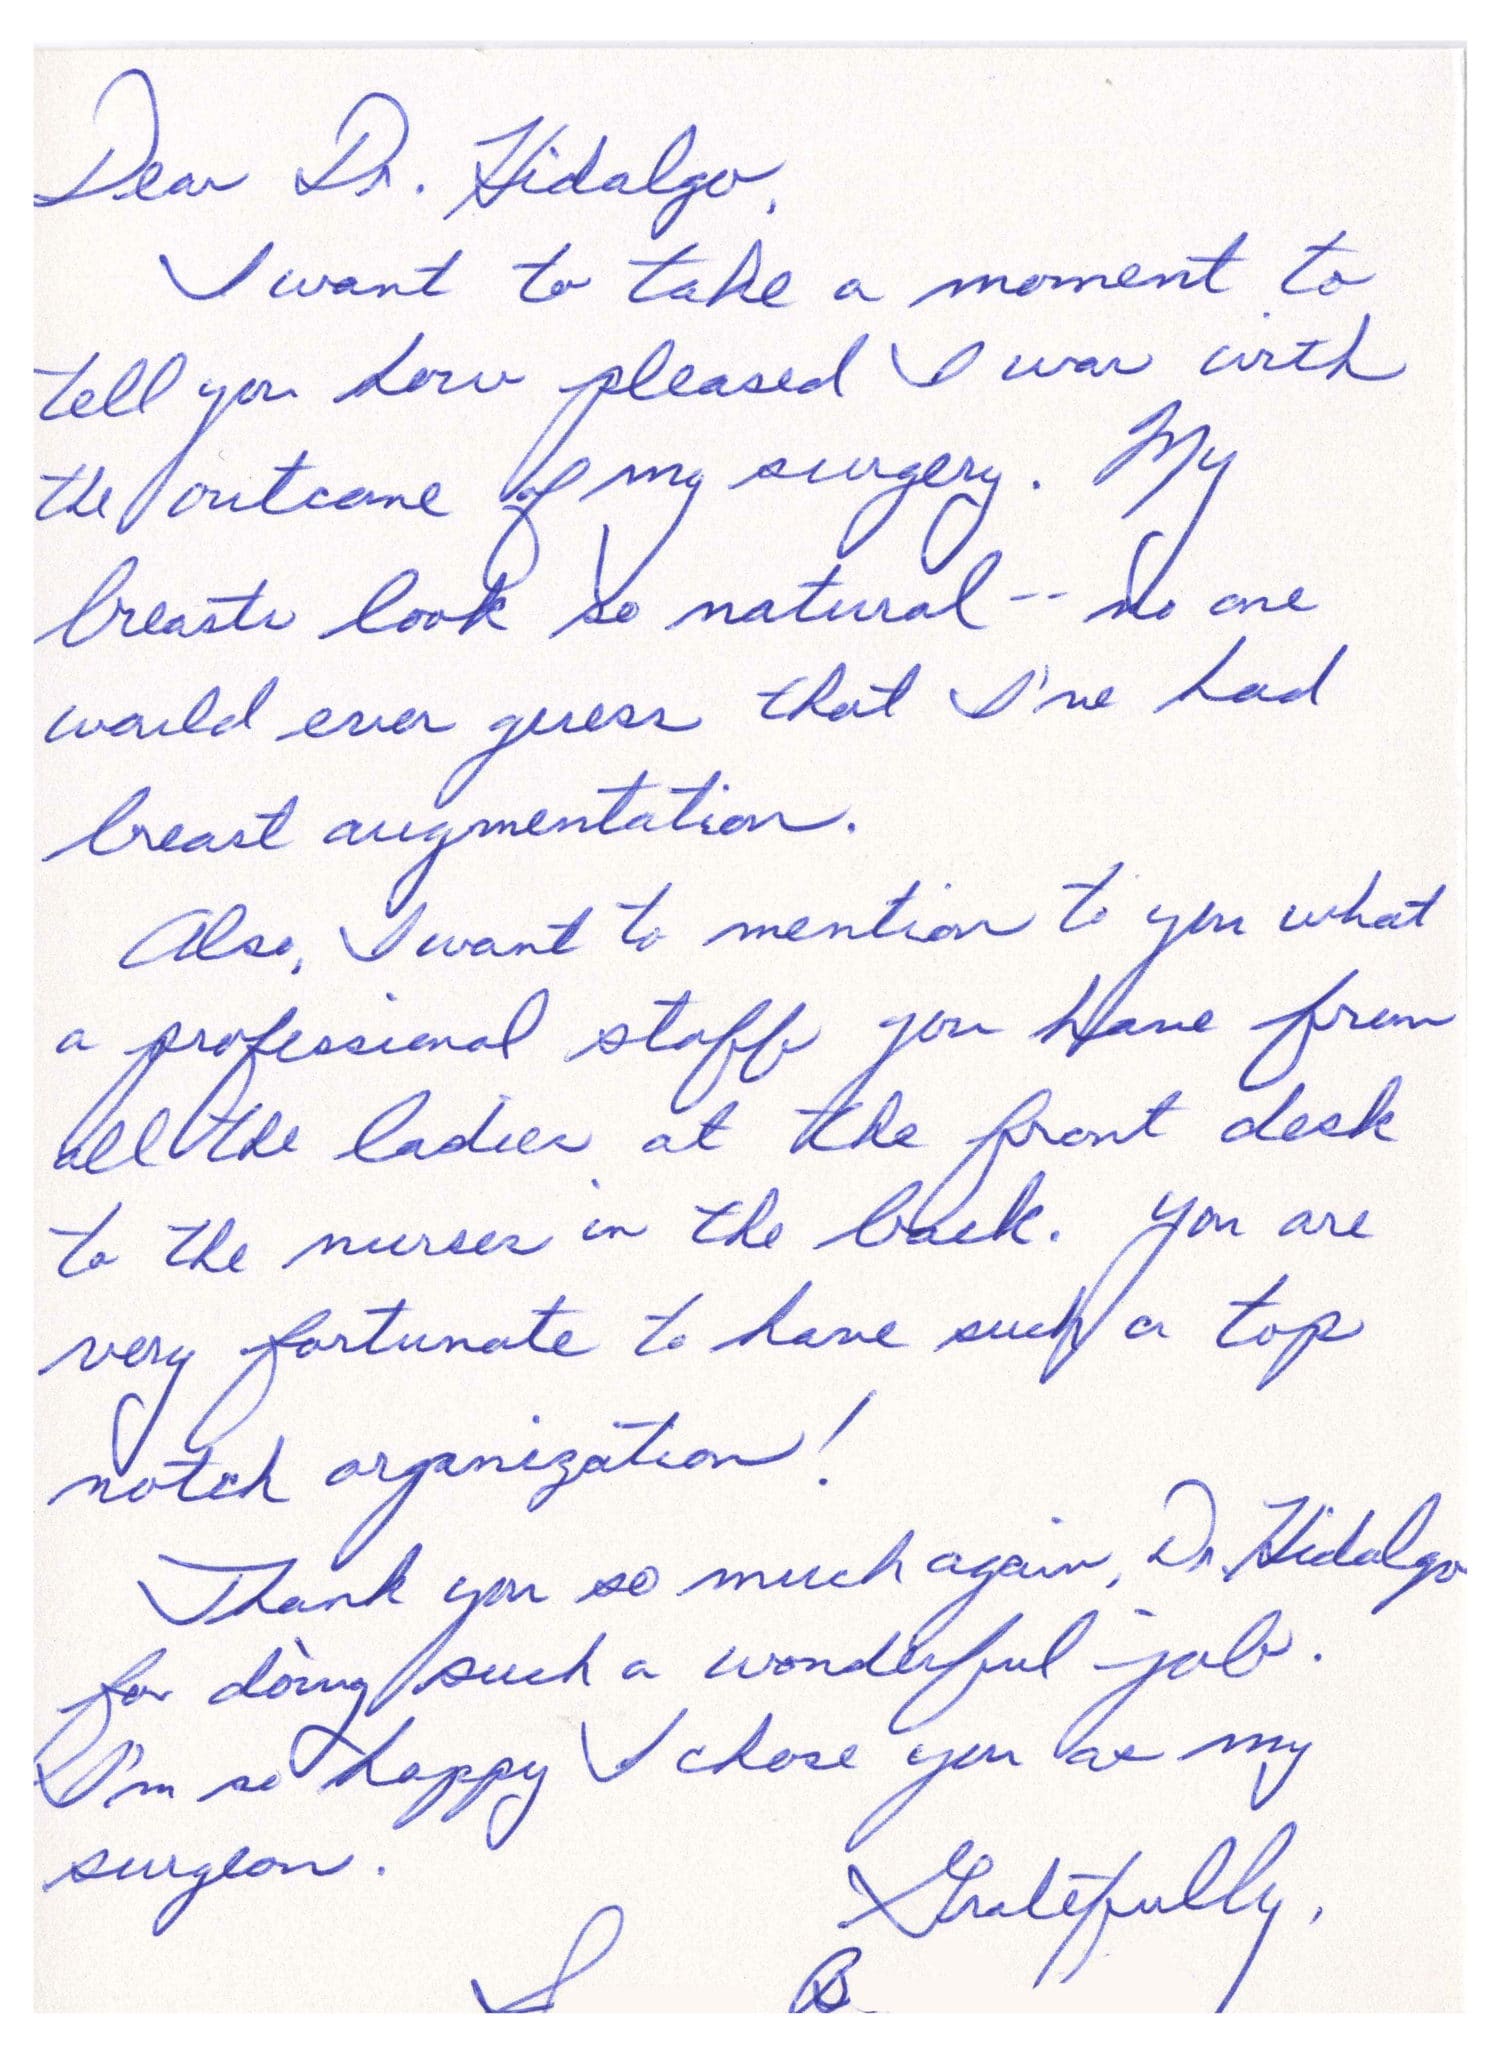 Dear Dr. Hidalgo,
I want to take a moment to
tell you how pleased I was with
the outcome of my surgery. My
breasts look so natural -- no one
would ever guess that I've had
breast augmentation.
Also, I want to mention to you what
a professional staff you have from
all the ladies at the front desk
to the nurses in the back. You are
very fortunate to have such a top
notch organization!
Thank you so much again, Dr. Hidalgo
for doing such a wonderful job.
I'm so happy I chose you as my
surgeon.
Gratefully,
S B